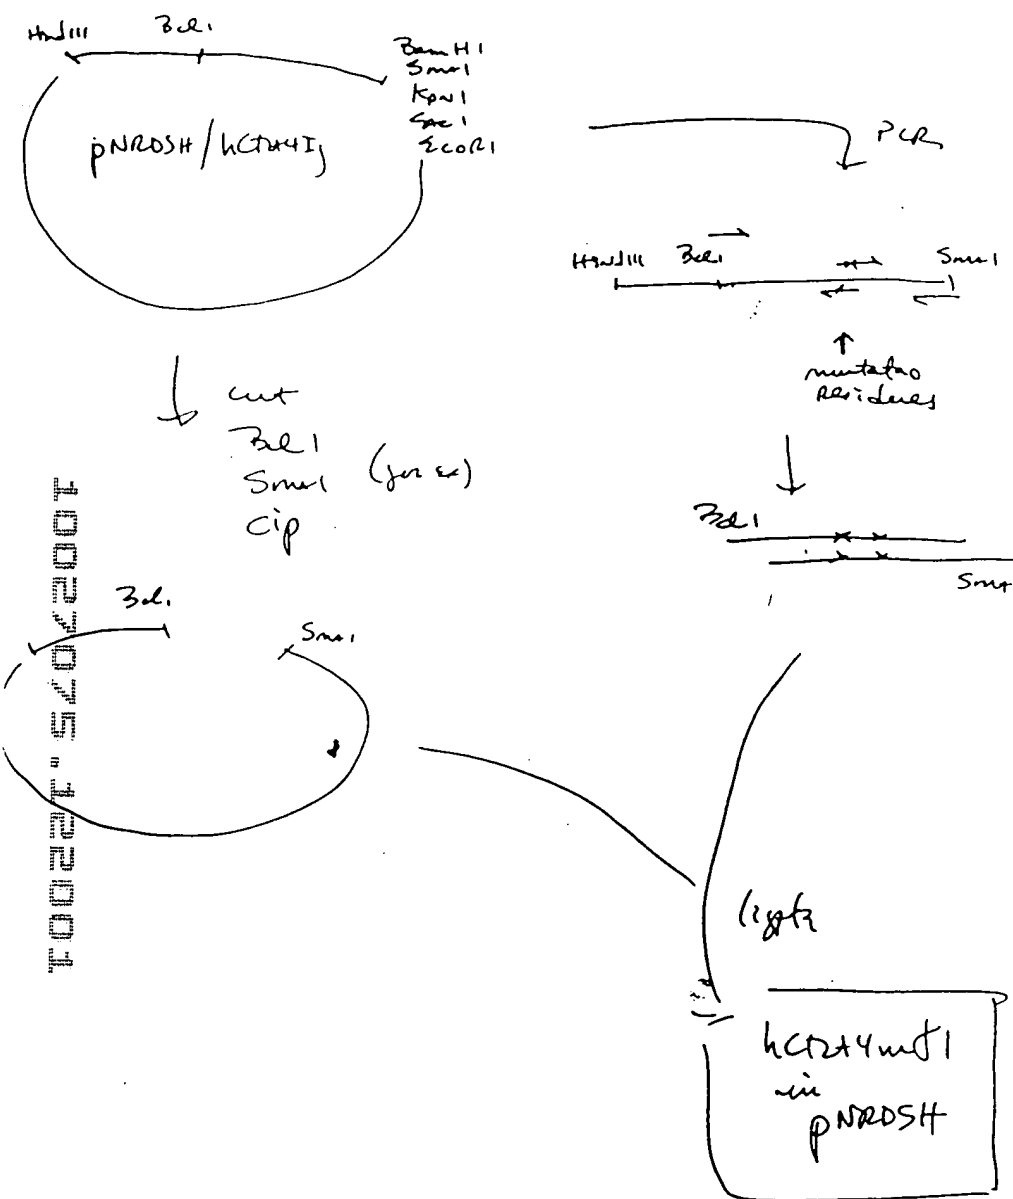 HindIII
Bcl1
BamH1
Sma1
Kpn1
Sac1
EcoR1
pNRDSH/hCTLA4Ig
PCR
HindIII
Bcl1
Sma1
cut
Bcl1
Sma1 (for ex)
cip
residues
Bcl1
Sma
Bcl1
Sma1
10027075.122001
ligate
hCTLA4mt1
in
pNRDSH